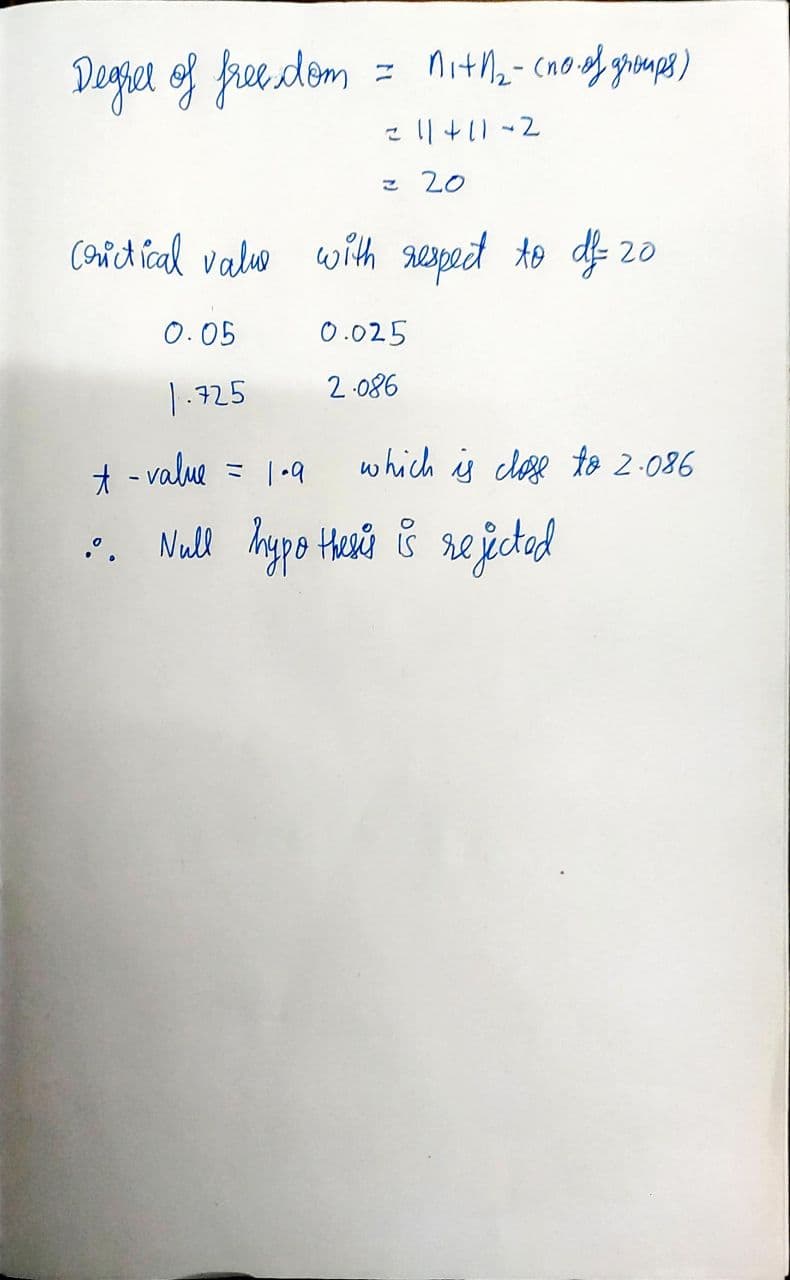 Degree of freedom = n₁+n₂-(no.of groups)
= 11+11-2
= 20
Critical value with respect to df= 20
0.05 0.025
1.725 2.086
t-value = 1.9 which is close to 2.086
∴ Null hypothesis is rejected